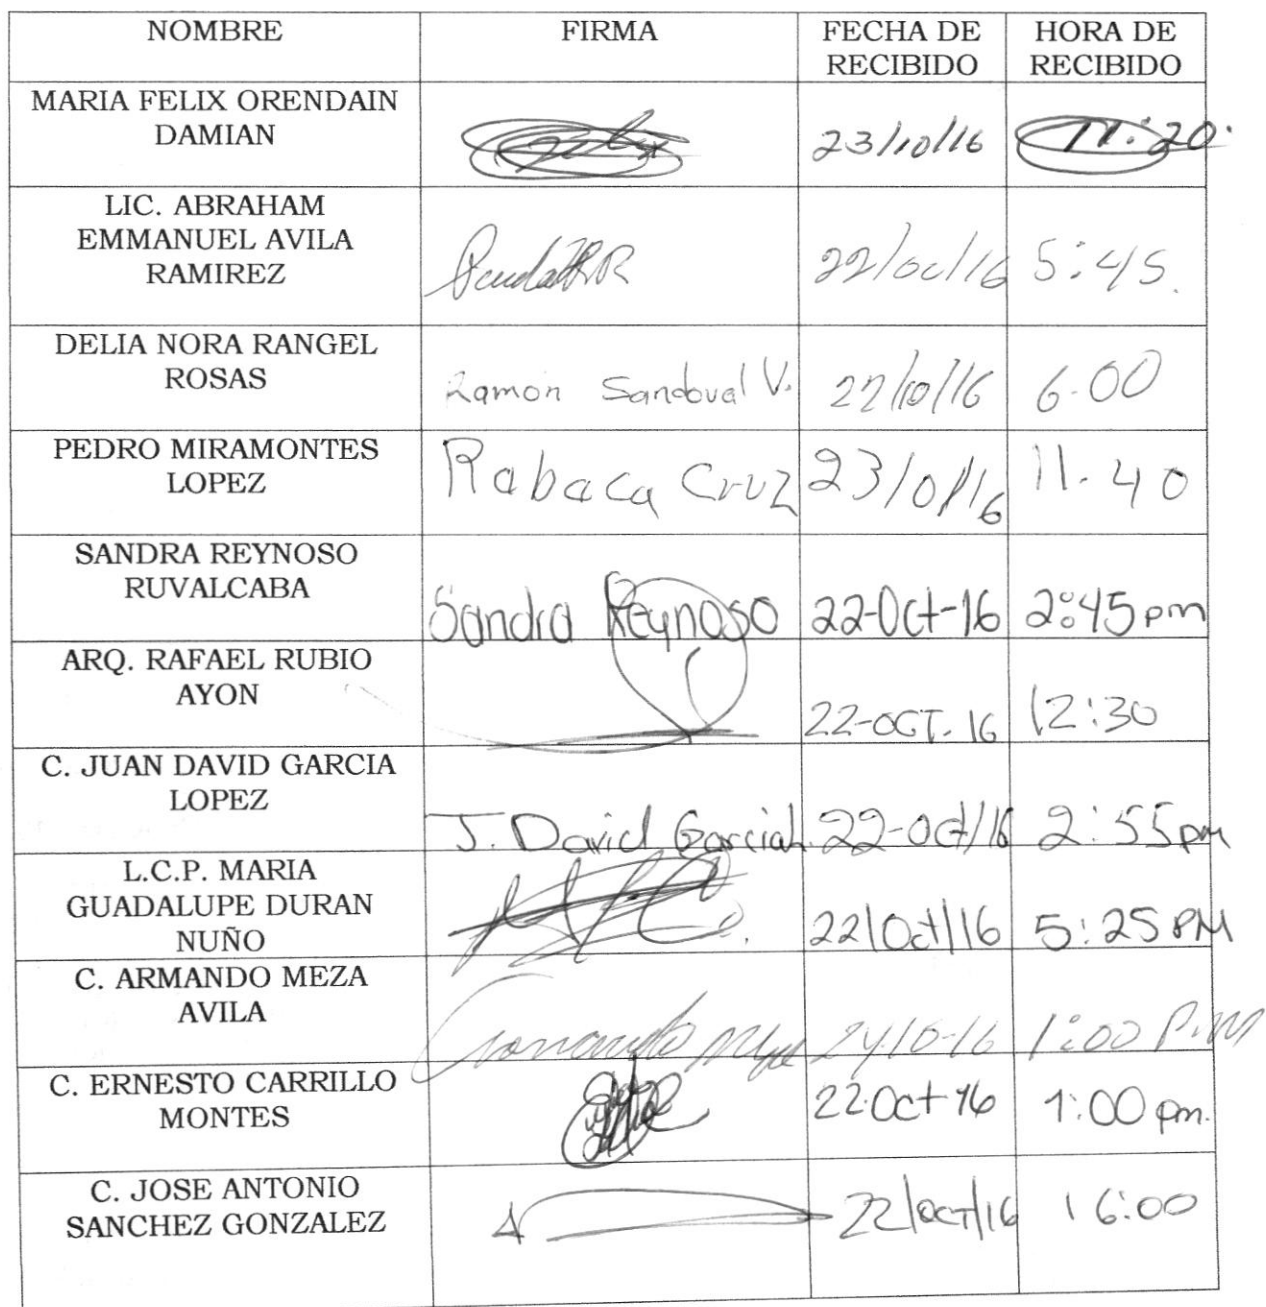 NOMBRE FIRMA FECHA DE RECIBIDO HORA DE RECIBIDO
MARIA FELIX ORENDAIN
DAMIAN 23/10/16 11:20.
LIC. ABRAHAM
EMMANUEL AVILA
RAMIREZ 22/oc/16 5:45.
DELIA NORA RANGEL
ROSAS Ramón Sandoval V. 22/10/16 6.00
PEDRO MIRAMONTES
LOPEZ Rabaca Cruz 23/10/16 11.40
SANDRA REYNOSO
RUVALCABA Sandra Reynoso 22-Oct-16 2:45pm
ARQ. RAFAEL RUBIO
AYON 22-OCT.16 12:30
C. JUAN DAVID GARCIA
LOPEZ J. David Garcia L. 22-Oct/16 2:55pm
L.C.P. MARIA
GUADALUPE DURAN
NUÑO 22/Oct/16 5:25 PM
C. ARMANDO MEZA
AVILA 24/10-16 1:00 P.M
C. ERNESTO CARRILLO
MONTES 22.Oct-16 1:00 pm.
C. JOSE ANTONIO
SANCHEZ GONZALEZ 22/oct/16 16:00